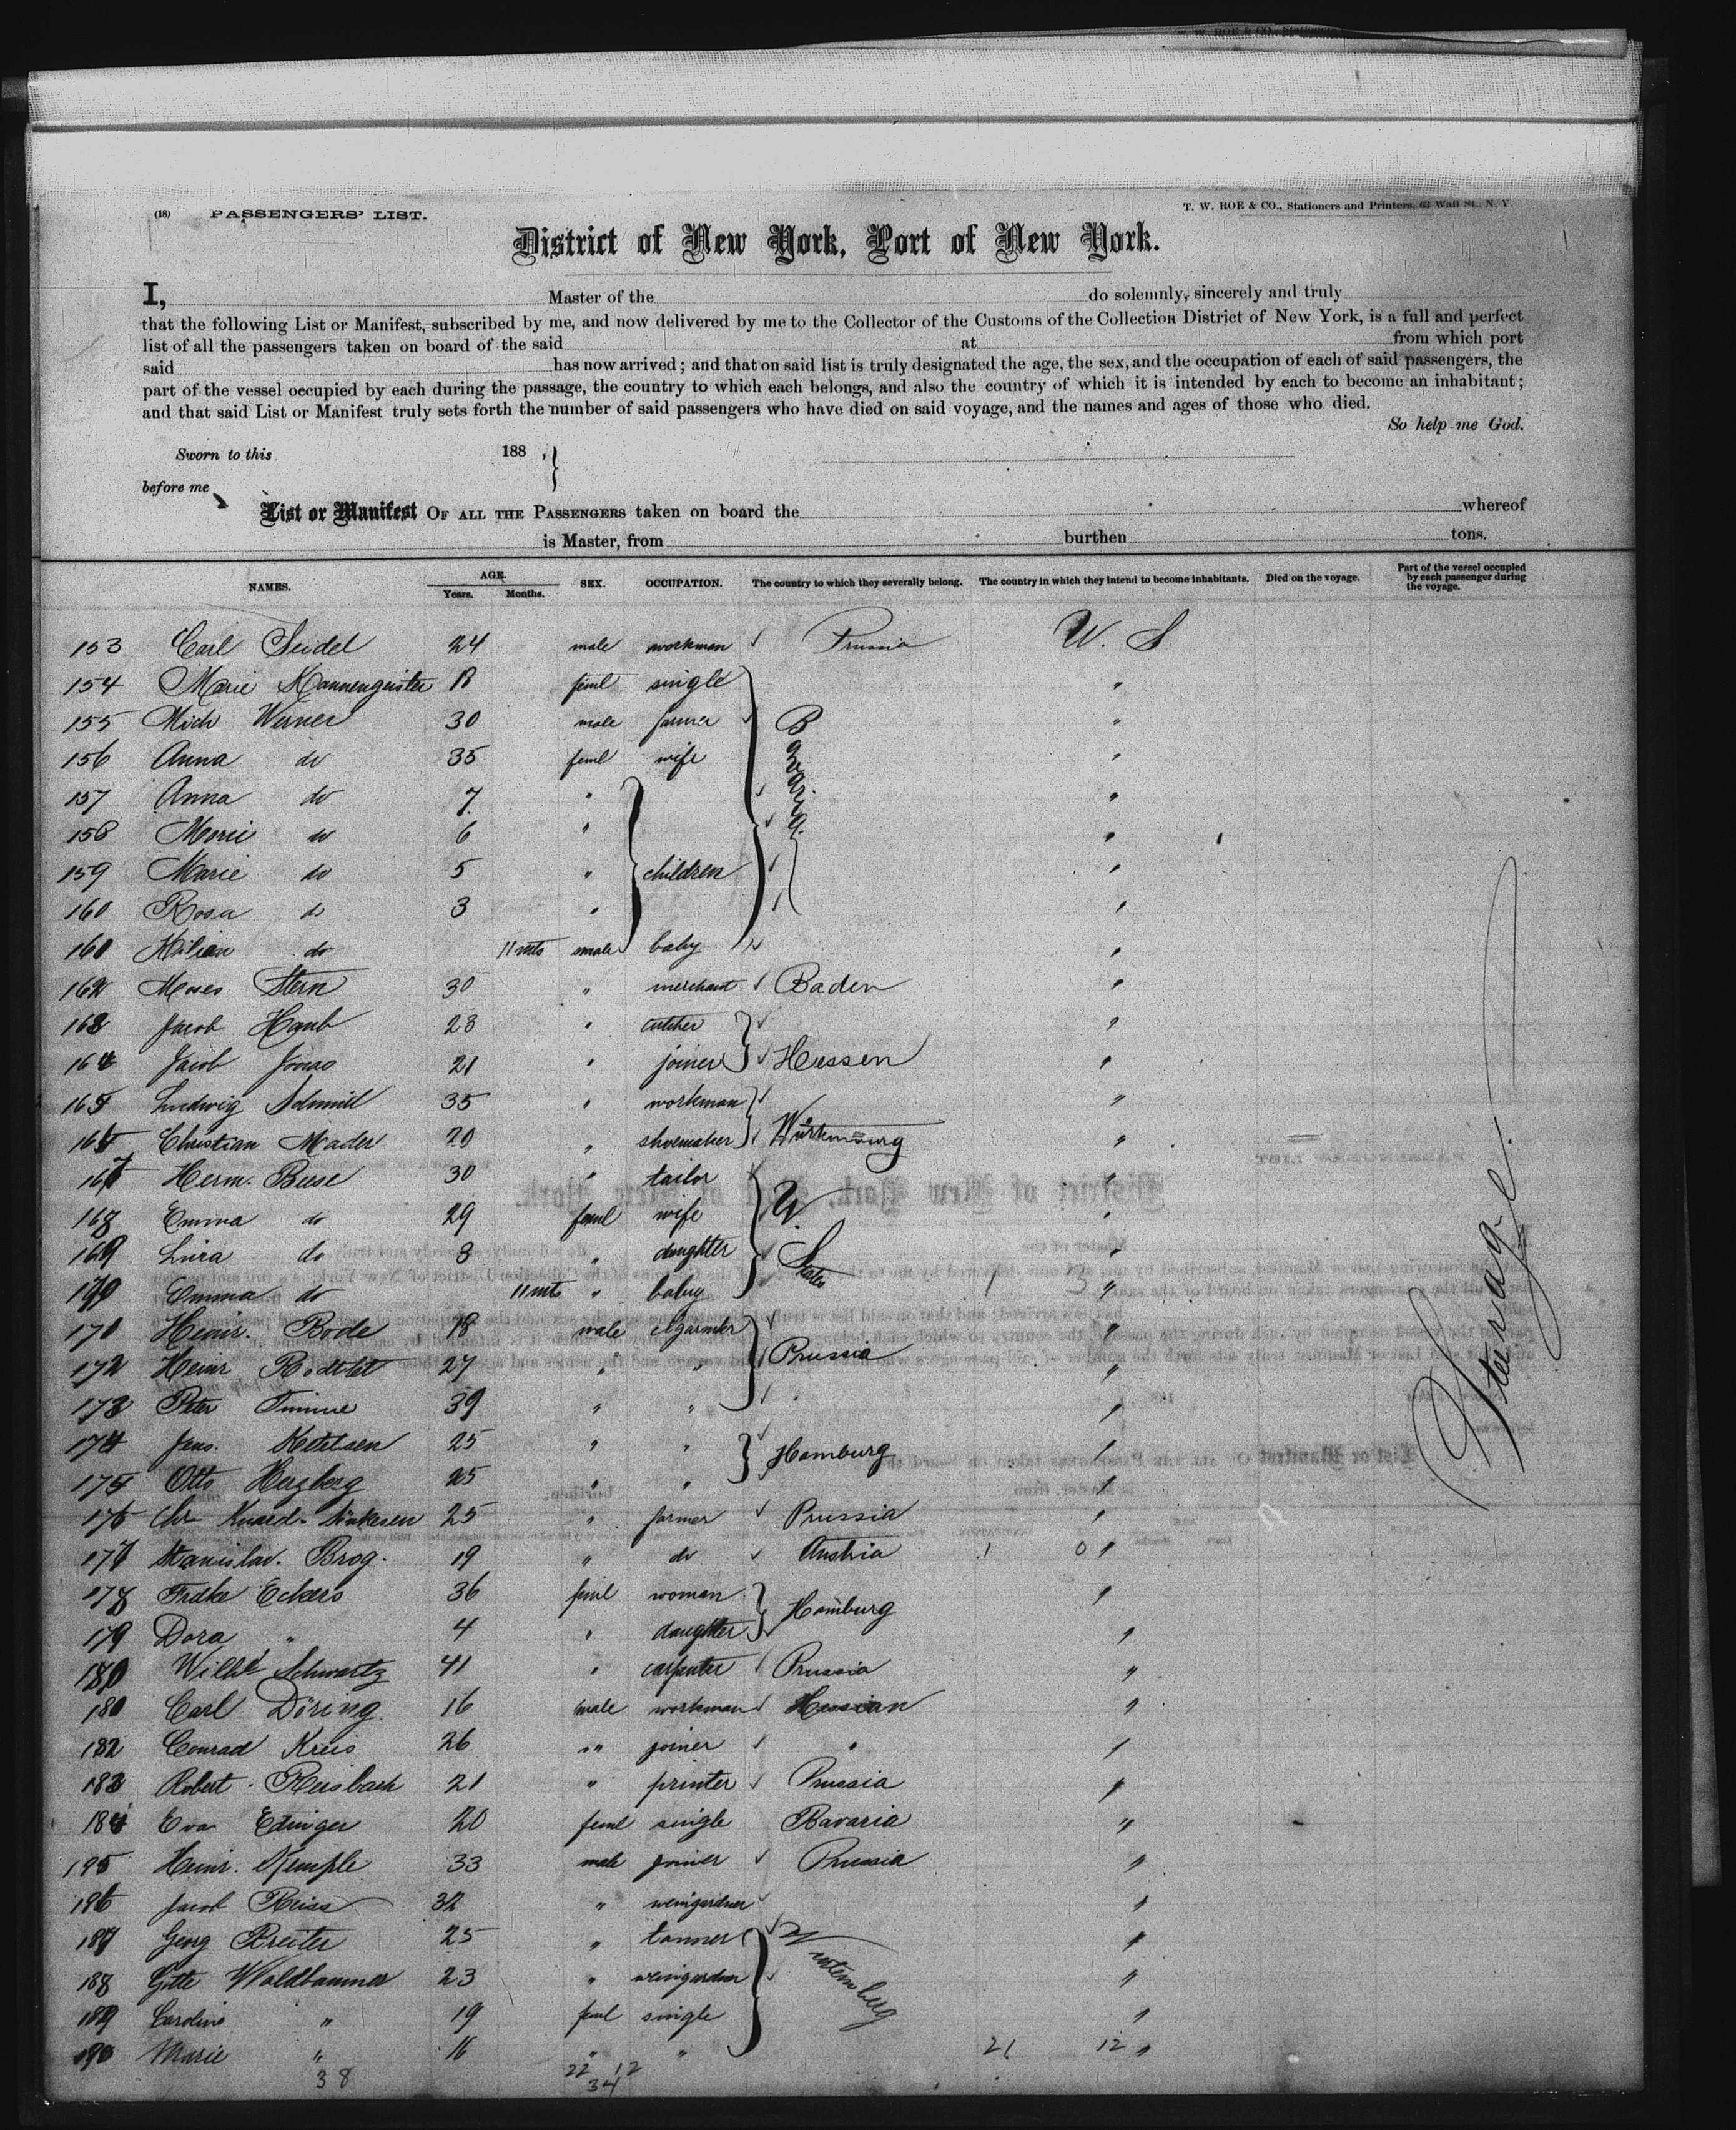 (18) PASSENGERS' LIST.
T. W. ROE & CO., Stationers and Printers, 63 Wall St., N. Y.
District of New York, Port of New York.
I, Master of the do solemnly, sincerely and truly
that the following List or Manifest, subscribed by me, and now delivered by me to the Collector of the Customs of the Collection District of New York, is a full and perfect
list of all the passengers taken on board of the said at from which port
said has now arrived; and that on said list is truly designated the age, the sex, and the occupation of each of said passengers, the
part of the vessel occupied by each during the passage, the country to which each belongs, and also the country of which it is intended by each to become an inhabitant;
and that said List or Manifest truly sets forth the number of said passengers who have died on said voyage, and the names and ages of those who died.
So help me God.
Sworn to this 188 ,
before me
List or Manifest OF ALL THE PASSENGERS taken on board the whereof
is Master, from burthen tons.
NAMES. AGE. Years. Months. SEX. OCCUPATION. The country to which they severally belong. The country in which they intend to become inhabitants. Died on the voyage. Part of the vessel occupied by each passenger during the voyage.
153 Carl Seidel 24 male workman Prussia U. S
154 Marie 18 feml single "
155 Mich Werner 30 male farmer Bavaria "
156 Anna do 35 feml wife "
157 Anna do 7 " "
158 Marie do 6 " "
159 Marie do 5 " children "
160 Rosa do 3 " "
160 Kilian do 11 mts male baby "
162 Moses Stern 30 " merchant Baden "
163 Jacob Haub 23 " "
164 Jacob 21 " joiner Hessen "
165 Ludwig Schmid 35 " workman "
166 Christian Mader 20 " shoemaker "
167 Herm. Beese 30 " tailor "
168 Emma do 29 feml wife U. "
169 do 3 " daughter States "
170 Emma do 11 mts " baby "
171 Heinr. Bode 18 male "
172 Heinr 27 " " Prussia "
173 Peter Timme 39 " " "
174 Jens. Ketelsen 25 " " Hamburg "
175 Otto Herzberg 25 " " "
176 Chr 25 " farmer Prussia "
177 Stanislav. Brog. 19 " do Austria "
178 Fridke Eckers 36 feml woman Hamburg "
179 Dora " 4 " daughter "
180 Schwartz 41 " carpenter Prussia "
180 Carl Döring 16 male workman "
182 Conrad Kreis 26 " joiner " "
183 Robert Reisbach 21 " printer Prussia "
184 Eva Edinger 20 feml single Bavaria "
185 Heinr. Kemple 33 male joiner Prussia "
186 Jacob Reiss 32 " weingardner "
187 Georg Breiter 25 " tanner Wurtemberg "
188 23 " weingardner "
189 Caroline " 19 feml single "
190 Marie " 16 " " 21 12 "
38 22 12
34
Steerage